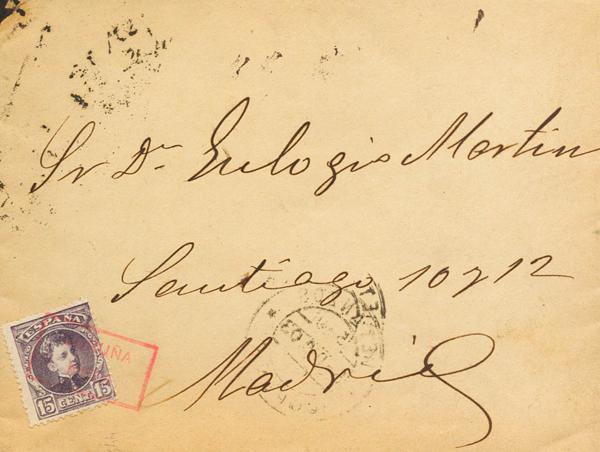 Sr Dn Eulogio Martin
Santiago 10 y 12
Madrid
ESPAÑA
15 CENTs 15
UÑA
03